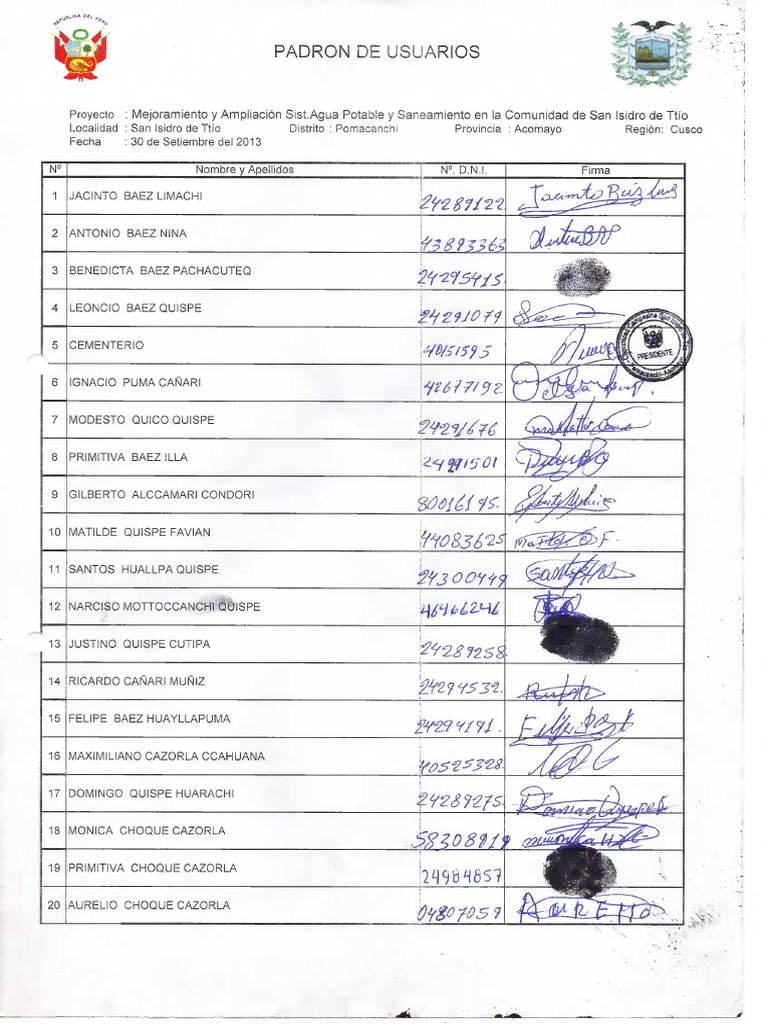 REPUBLICA DEL PERU
PADRON DE USUARIOS
Proyecto : Mejoramiento y Ampliación Sist.Agua Potable y Saneamiento en la Comunidad de San Isidro de Ttío
Localidad : San Isidro de Ttío Distrito : Pomacanchi Provincia : Acomayo Región: Cusco
Fecha : 30 de Setiembre del 2013
Nº Nombre y Apellidos Nº. D.N.I. Firma
1 JACINTO BAEZ LIMACHI 24289122
2 ANTONIO BAEZ NINA 43893363
3 BENEDICTA BAEZ PACHACUTEQ 24295415
4 LEONCIO BAEZ QUISPE 24291079
5 CEMENTERIO 40151595 PRESIDENTE
6 IGNACIO PUMA CAÑARI 42677192
7 MODESTO QUICO QUISPE 24291676
8 PRIMITIVA BAEZ ILLA
9 GILBERTO ALCCAMARI CONDORI 80016195.
10 MATILDE QUISPE FAVIAN 44083625
11 SANTOS HUALLPA QUISPE 24300449
12 NARCISO MOTTOCCANCHI QUISPE 46466246
13 JUSTINO QUISPE CUTIPA 24289258
14 RICARDO CAÑARI MUÑIZ 24294532.
15 FELIPE BAEZ HUAYLLAPUMA 24294191.
16 MAXIMILIANO CAZORLA CCAHUANA 40525328.
17 DOMINGO QUISPE HUARACHI 24289275.
18 MONICA CHOQUE CAZORLA 58308919
19 PRIMITIVA CHOQUE CAZORLA 24984857
20 AURELIO CHOQUE CAZORLA 04807059